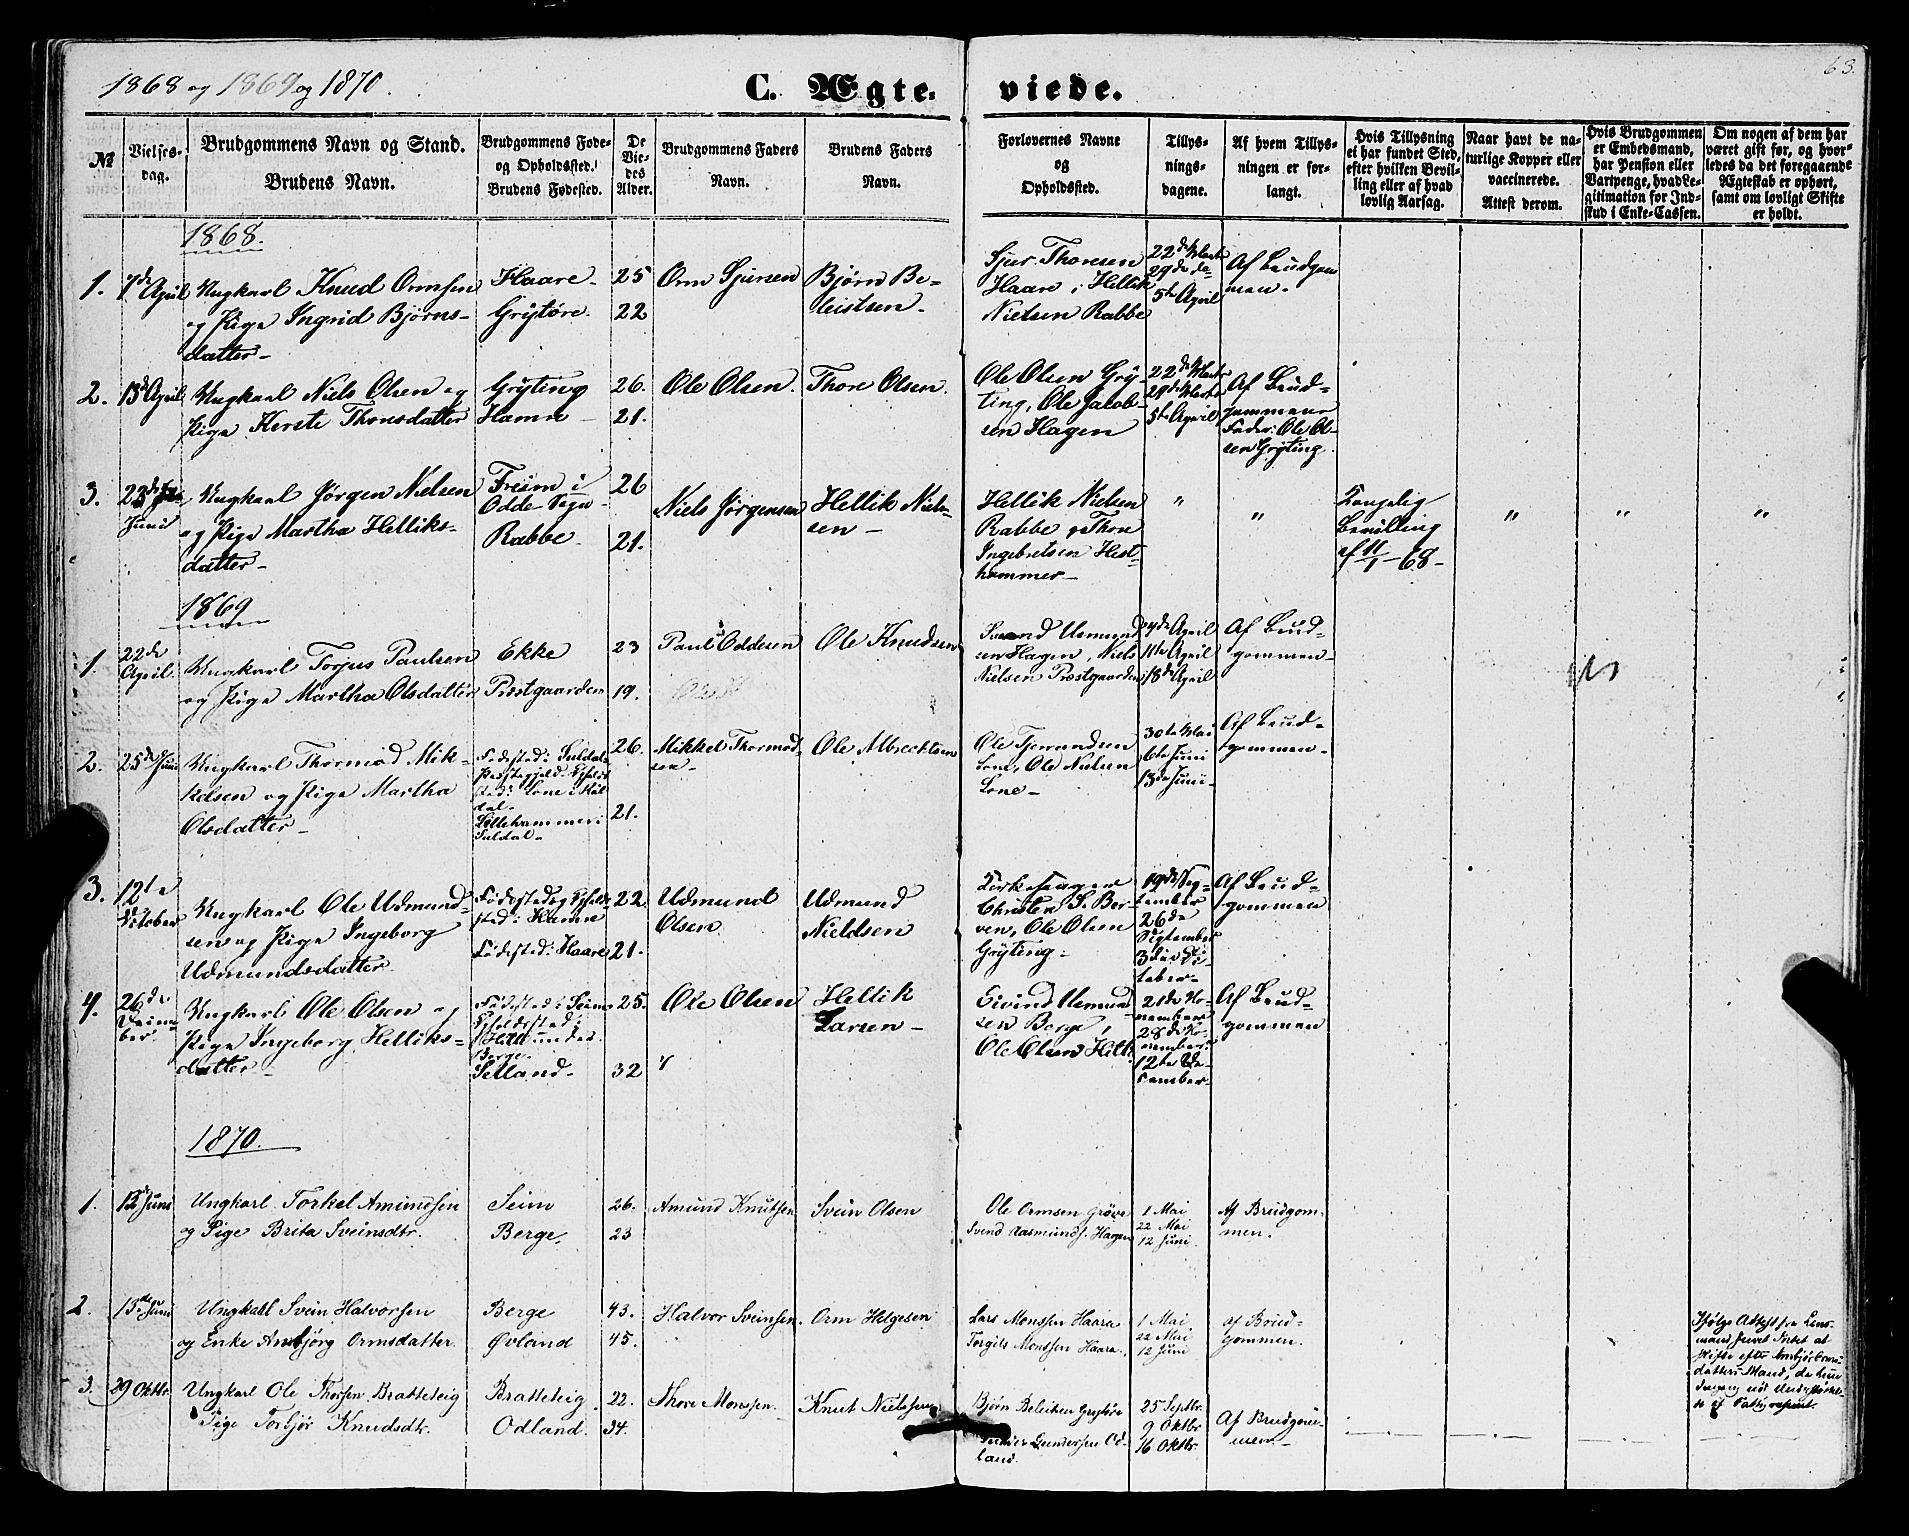 1868 og 1869 og 1870.
C. Ægteviede.
63.
№
Vielses-
dag.
Brudgommens Navn og Stand.
Brudens Navn.
Brudgommens Føde-
og Opholdssted.
Brudens Fødested.
De
Vie-
des
Alder.
Brudgommens Faders
Navn.
Brudens Faders
Navn.
Forlovernes Navne
og
Opholdssted.
Tillys-
nings-
dagene.
Af hvem Tillys-
ningen er for-
langt.
Hvis Tillysning
ei har fundet Sted,
efter hvilken Bevil-
ling eller af hvad
lovlig Aarsag.
Naar havt de na-
turlige Kopper eller
vaccinerede.
Attest derom.
Hvis Brudgommen
er Embedsmand,
har Pension eller
Vartpenge, hvad Le-
gitimation for Ind-
skud i Enke-Cassen.
Om nogen af dem har
været gift før, og hvor-
ledes da det foregaaende
Ægteskab er ophørt,
samt om lovligt Skifte
er holdt.
1868.
1. 7de April
Ungkarl Knud Ormsen
og Pige Ingrid Bjørns-
datter
Haare
Grytøre
25
22
Orm Sjursen
Bjørn Be-
leistsen
Sjur Thoresen
Haare, Hellik
Nielsen Rabbe
22de Marts
29de do
5te April
Af Brudgom
men.
2. 13de April
Ungkarl Niels Olsen og
Pige Kerste Thorsdatter
Gryting
Hamre
26.
21.
Ole Olsen.
Thore Olsen.
Ole Olsen Gry-
ting, Ole Jacob-
sen Hagen
22de Marts
29de Marts
5te April
Af Brud-
gommens
Fader: Ole Ol-
sen Gryting.
3. 23de
Juni
Ungkarl Jørgen Nielsen
og Pige Martha Helliks-
datter
Freim i
Odde Sogn
Rabbe
26
21.
Niels Jørgensen
Hellik Niel-
sen
Hellik Nielsen
Rabbe og Thore
Ingebretsen Hest-
hammer
" "
Kongelig
Bevilling
af 11/1 68
" " "
1869
1. 22de
April
Ungkarl Torjus Paulsen
og Pige Martha Olsdatter
Ekke
Præstgaarden
23
19.
Paul Oddesen
Ole Knudsen
Svend Usmund
sen Hagen, Niels
Nielsen Præstgaarden
4de April
11te April
18de April
Af Brud-
gommen
2. 25de Juni
Ungkarl Thormod Mik-
kelsen og Pige Martha
Olsdatter
Fødested: Suldals
Præstegjeld. Opholds
sted: Lone i Røl
dal.
Lillehammer i
Suldal
26.
21.
Mikkel Thormod
sen
Ole Albrechtsen
Ole Tjerandsen
Lone, Ole Nielsen
Lone
30te Mai
6te Juni
13de Juni
Af Brud-
gommen
3. 12te
October
Ungkarl Ole Udmund-
sen og Pige Ingeborg
Udmundsdatter
Fødested og Opholds
sted: Hamre
Fødested: Haare
22.
21.
Udmund
Olsen
Udmund
Nieldsen
Kirkesanger
Christen S. Bor-
ven, Ole Olsen
Gryting
19de Sep-
tember
26de
September
3die Oc-
tober
Af Brud-
gommen
4. 26de
Decem-
ber.
Ungkarl Ole Olsen og
Pige Ingeborg Helliks-
datter
Fødested: Seim
Opholdssted:
Helle under
Berge.
Selland
25.
32
Ole Olsen
Hellik
Larsen
Eivind Usmund
sen Berge,
Ole Olsen Helle
21de No-
vember
28de No-
vember
12te De-
cember
Af Brud-
gommen
1870.
1. 12 Juni
Ungkarl Torkel Amundsen
og Pige Brita Sveinsdtr.
Seim
Berge.
26.
23
Amund Knutsen
Svein Olsen
Ole Ormsen Grøve
Svend Aasmunds. Hagen
1 Mai
22 Mai
12 Juni
Af Brudgom-
men.
2. 13de Juni
Ungkarl Svein Halvorsen
og Enke Anbjörg Ormsdatter
Berge
Øvland
43.
45.
Halvor Sveinsen.
Orm Helgesen
Lars Monssen Haara
Torgils Monssen Haara.
1 Mai
22 Mai
12 Juni
af Brud-
gommen.
Ifølge Attest fra Lens-
mand
Skifte efter Anbjör Orms
datters Mand, da
3. 29 Oktbr.
Ungkarl Ole Thorsen Bratteteig
Pige Torbjør Knudsdtr.
Bratteteig
Odland.
22.
34.
Thore Monssen.
Knut Neilssen
Bjørn Beleiksen Grytøre
Gunder Gundersen Od-
land.
25 Septbr.
9 Oktbr
16 Oktbr.
Af Brudgom-
men.